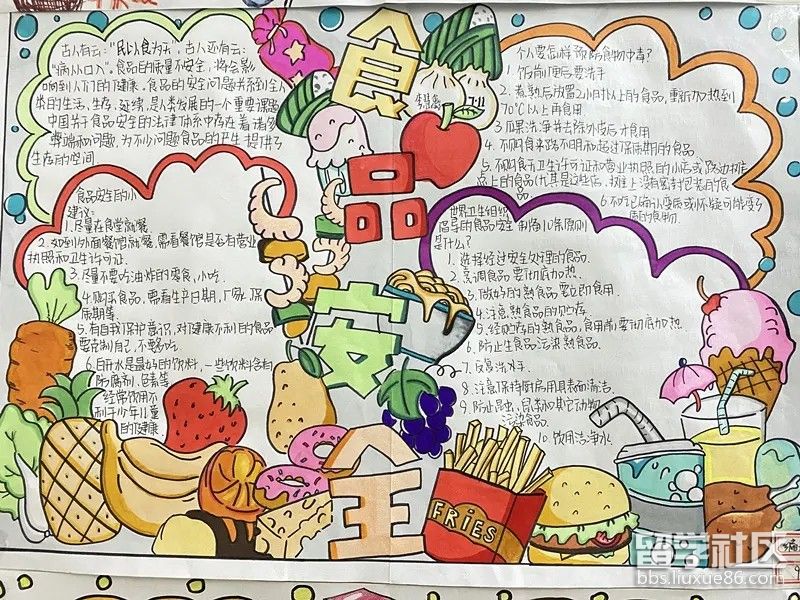 食品安全
古人有云："民以食为天"，古人还有云：
"病从口入"。食品的质量不安全，将会影
响到人们的健康。食品的安全问题关系到全人
类的生活，生存，延续，是人类发展的一个重要课题
中国关于食品安全的法律体系中存在着诸多
弊端和问题，为不少问题食品的产生提供了
生存的空间
食品安全的小
建议：
1.尽量在食堂就餐
2.如到外面餐馆就餐，需看餐馆是否有营业
执照和卫生许可证.
3.尽量不要吃油炸的零食，小吃.
4.购买食品，需看生产日期，厂家，保
质期等.
5.有自我保护意识，对健康不利的食品
要克制自己，不要多吃.
6.白开水是最好的饮料，一些饮料含有
防腐剂，色素等
经常饮用不
利于少年儿童
的健康.
个人要怎样预防食物中毒？
1.饭前便后要洗手
2.煮熟后放置2小时以上的食品，重新加热到
70℃以上再食用.
3.瓜果洗净并去除外皮后才食用
4.不购食来路不明和超过保质期的食品.
5.不购食无卫生许可证和营业执照的小店或路边摊
点上的食品(尤其是这些店，摊上没有密封包装的食
品.
6.不吃已确认变质或怀疑可能变了
质的食物.
世界卫生组织
倡导的食品安全制备10条原则
是什么？
1.选择经过安全处理的食品.
2.烹调食品要彻底加热.
3.做好的熟食品要立即食用.
4.注意熟食品的贮存.
5.经贮存的熟食品，食用前要彻底加热.
6.防止生食品污染熟食品.
7.反复洗手.
8.注意保持厨房用具表面清洁.
9.防止昆虫，鼠类和其它动物
污染食品.
10.饮用洁净水
FRIES
留学社区
bbs.liuxue86.com